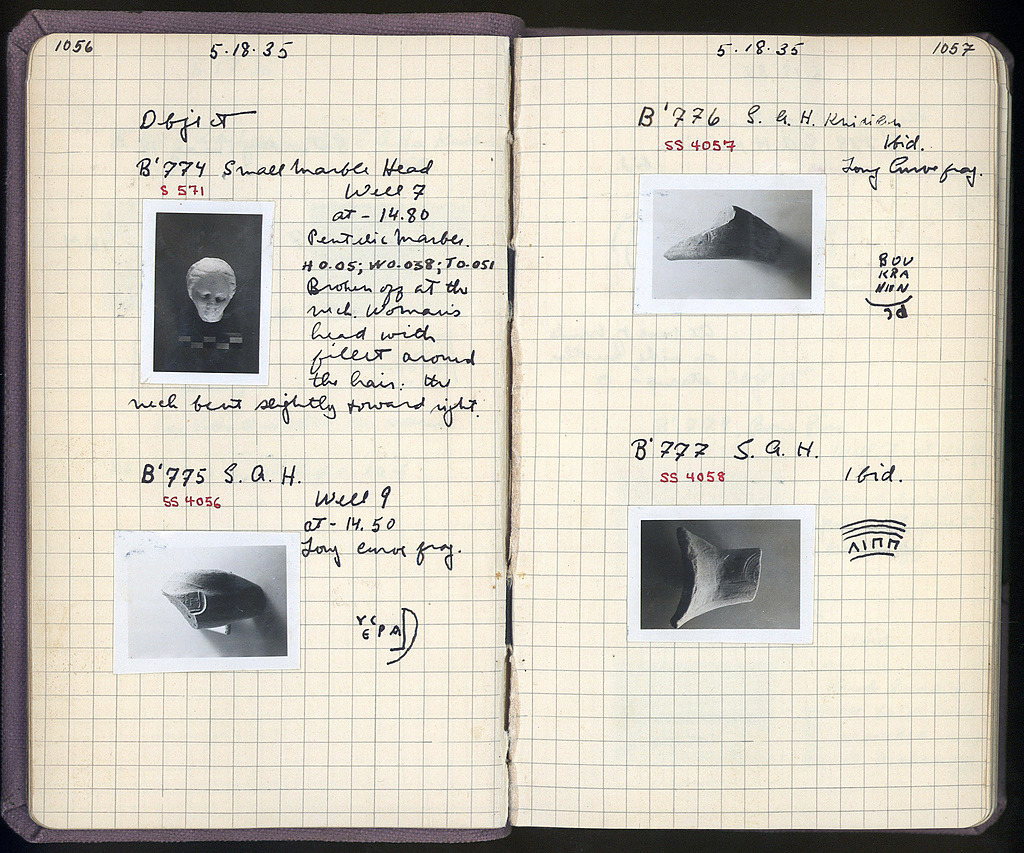 1056
5·18·35
Object
B'774 Small Marble Head
S 571
Well 7
at - 14.80
Pentelic Marble.
H 0.05; W 0.038; T 0.051
Broken off at the
neck. Woman's
head with
fillet around
the hair: the
neck bent slightly toward right.
B'775 S. A. H.
SS 4056
Well 9
at - 14.50
Long Curve frag.
ΕΡΑ
5·18·35
1057
B'776 S. A. H. Knidian
SS 4057
Ibid.
Long Curve frag.
ΒΟΥ
ΚΡΑ
ΝΙΟΝ
B'777 S. A. H.
SS 4058
Ibid.
ΛΙΠΠ